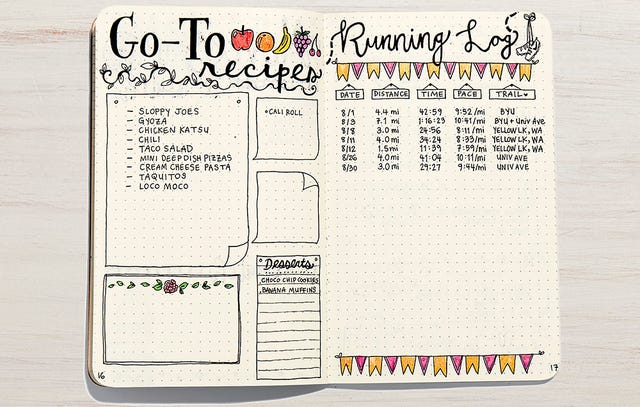 Go-To
recipes
- SLOPPY JOES
- GYOZA
- CHICKEN KATSU
- CHILI
- TACO SALAD
- MINI DEEP DISH PIZZAS
- CREAM CHEESE PASTA
- TAQUITOS
- LOCO MOCO
•CALI ROLL
Desserts
CHOCO CHIP COOKIES
BANANA MUFFINS
16
Running Log
DATE DISTANCE TIME PACE TRAIL
8/1 4.4 mi 42:59 9:52/mi BYU
8/3 7.1 mi 1:16:23 10:41/mi BYU + UNIV AVE
8/8 3.0 mi 24:56 8:11/mi YELLOW LK, WA
8/11 4.0 mi 34:24 8:33/mi YELLOW LK, WA
8/12 1.5 mi 11:39 7:59/mi YELLOW LK, WA
8/26 4.0 mi 41:04 10:11/mi UNIV AVE
8/30 3.0 mi 29:27 9:44/mi UNIV AVE
17